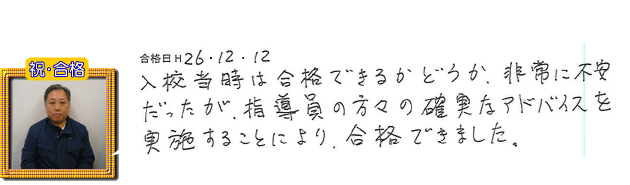 祝・合格
合格日H26・12・12
入校当時は合格できるかどうか、非常に不安
だったが、指導員の方々の確実なアドバイスを
実施することにより、合格できました。